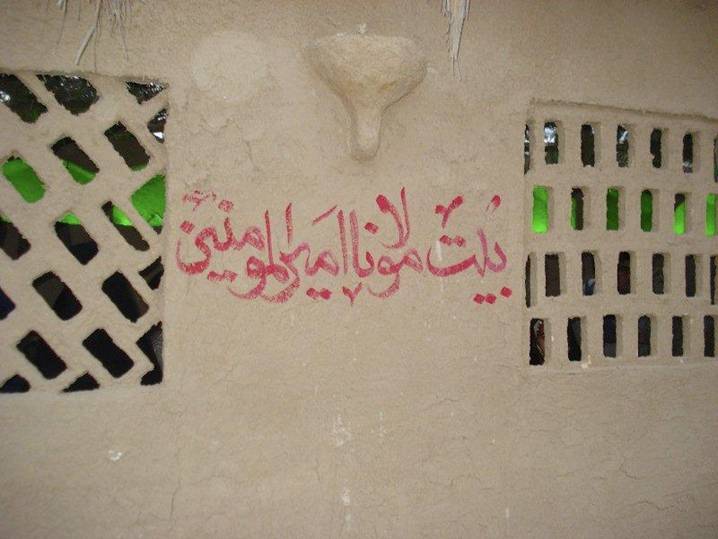 بیت مولانا امیرالمومنین